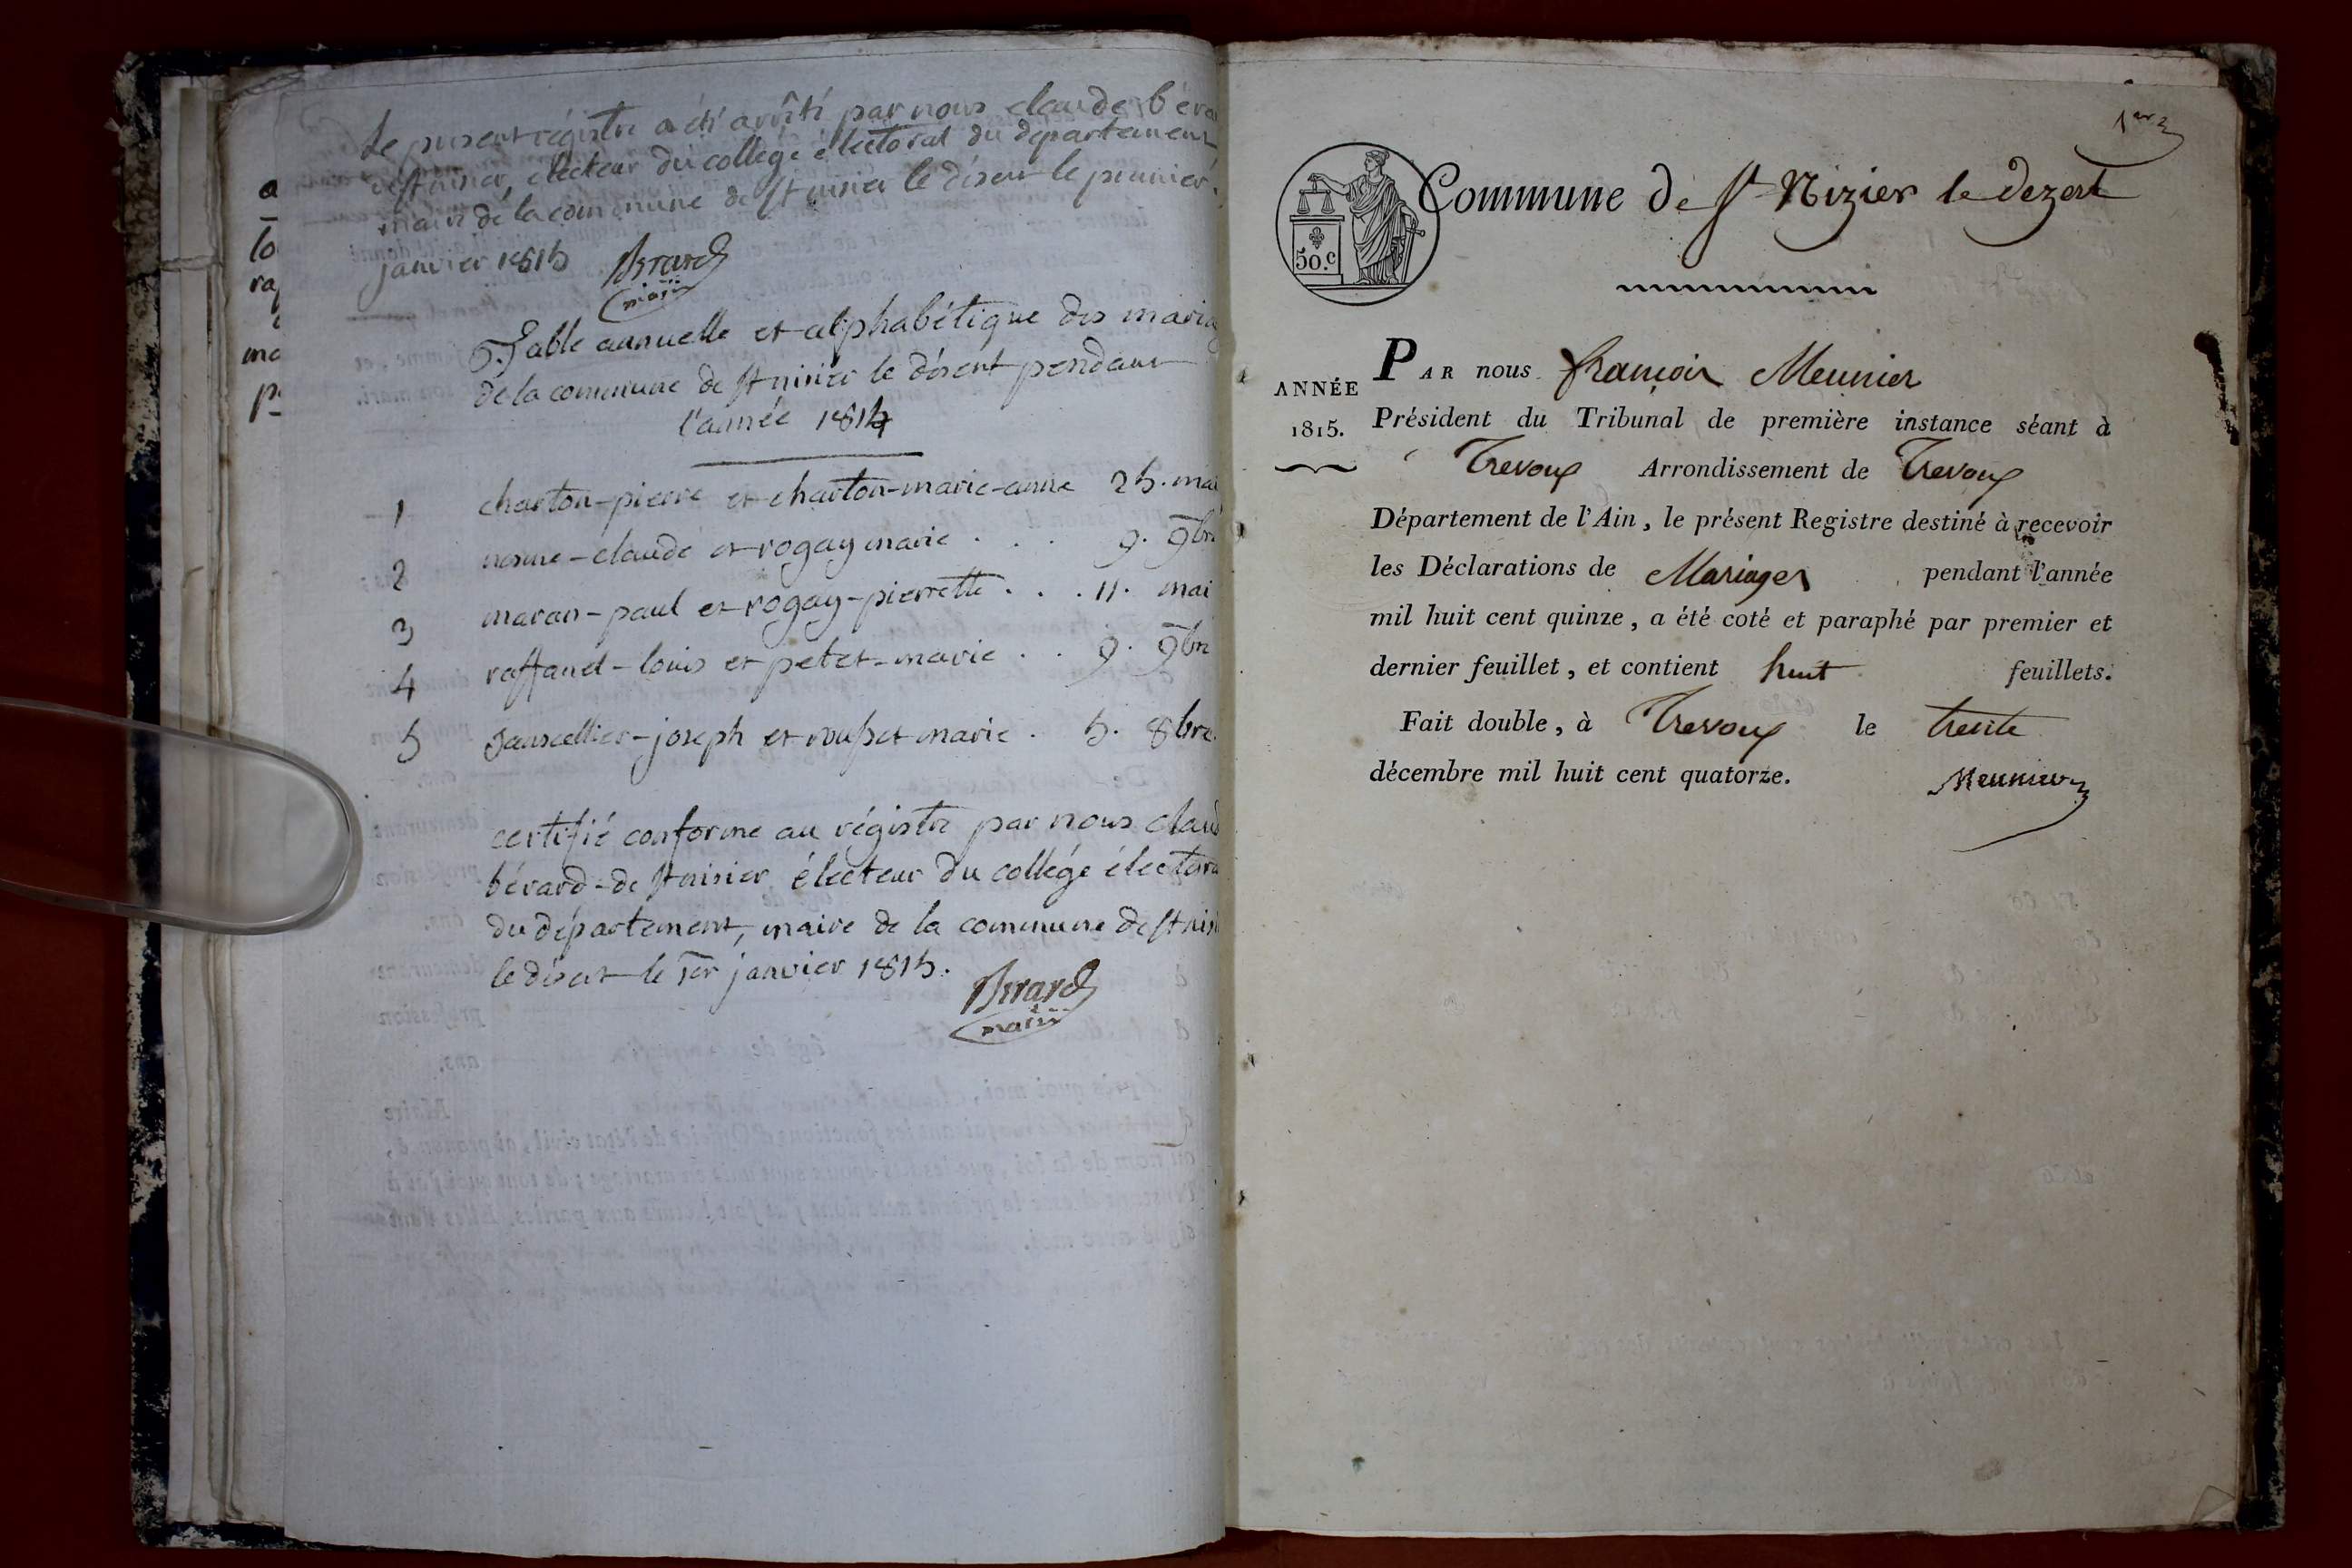 Le présent régistre a été arrêté par nous claude béra
de st nisier, électeur du collége électoral du département
maire de la commune de st nisier le désert le premier
janvier 1815 Bérard
maire
Table annuelle et alphabétique des maria
de la commune de st nisier le désert pendant
l'année 1814
1 charton-pierre et charton-marie-anne 25. mai
2 nesme-claude et rogay marie . . . 9. 9bre
3 maran-paul et rogay-pierrette . . . 11. mai
4 raffanel-louis et petet-marie . . 9. 9bre
5 joseph et rousset marie . 5. 8bre
certifié conforme au régistre par nous claud
bérard-de st nisier électeur du collége électora
du département, maire de la commune de st nisi
le désert le 1er janvier 1815.
Bérard
maire
1er
50.c
Commune de St Nizier le dezert
ANNÉE
1815.
PAR nous françois Meunier
Président du Tribunal de première instance séant à
Trevoux Arrondissement de Trevoux
Département de l'Ain, le présent Registre destiné à recevoir
les Déclarations de Mariages pendant l'année
mil huit cent quinze, a été coté et paraphé par premier et
dernier feuillet, et contient huit feuillets.
Fait double, à Trevoux le trente
décembre mil huit cent quatorze. Meunier